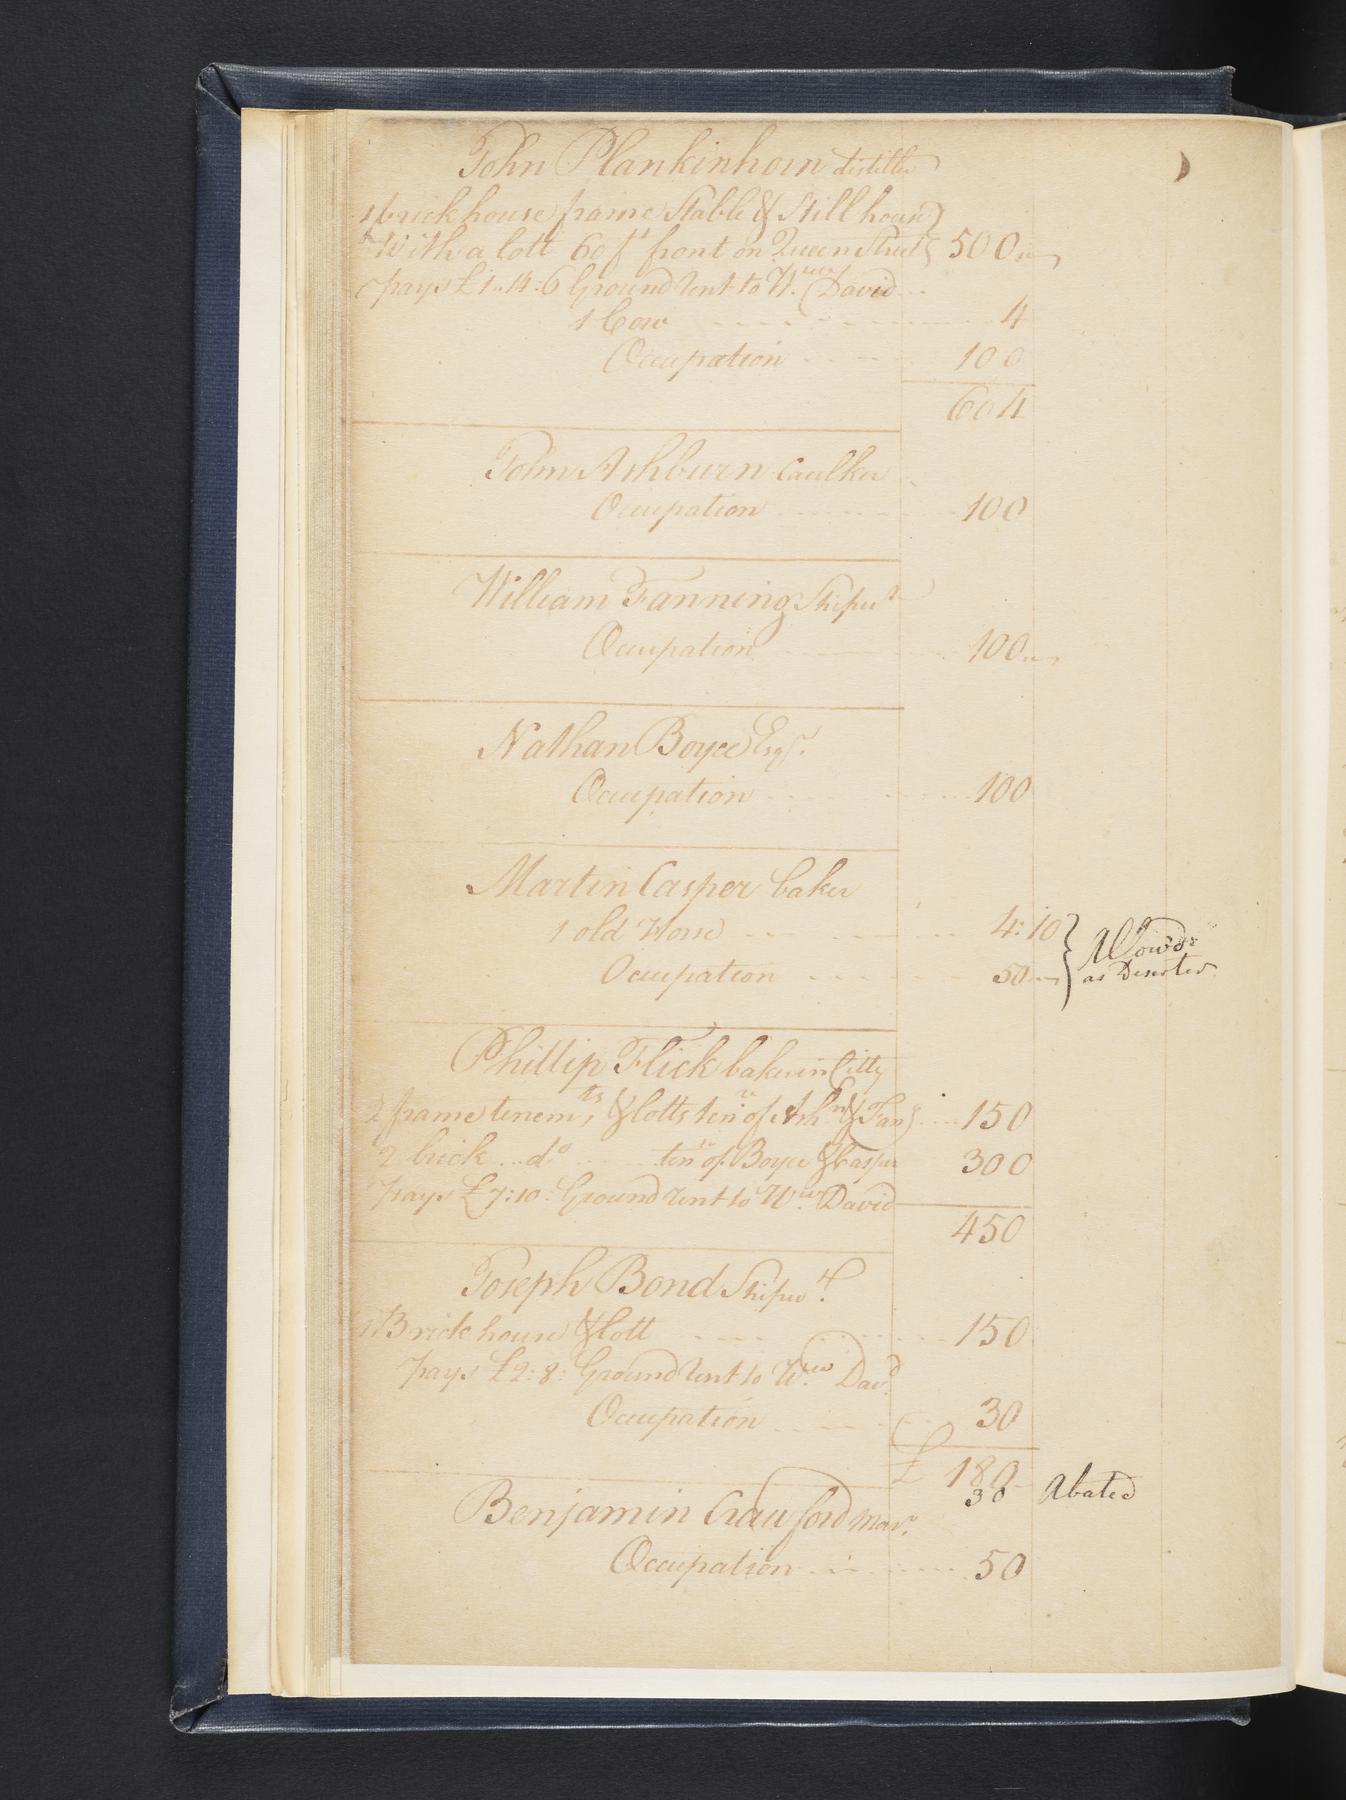 John Plankinhorn distiller
1 brick house frame Stable & Still house
With a lott 60 ft front on Queen Street 500
pays £1..14:6 Ground Rent to Wm David
1 Cow 4
Occupation 100
604
John Ashburn Caulker
Occupation 100
William Fanning Shipwt
Occupation 100
Nathan Boyce Esqr.
Occupation 100
Martin Casper baker
1 old Horse 4:10
Allowd
Occupation 50
as Deserter
Phillip Flick baker in Citty
2 frame tenemts, & lotts tenre of Ashn & Fang 150
2 brick do tenre of Boyce & Casper 300
pays £7:10: Ground Rent to Wm David
450
Joseph Bond Shipwt.
1 Brick house & lott 150
pays £2:8: Ground Rent to Wm Davd.
Occupation 30
£ 180
30 Abated
Benjamin Crauford Marr.
Occupation 50